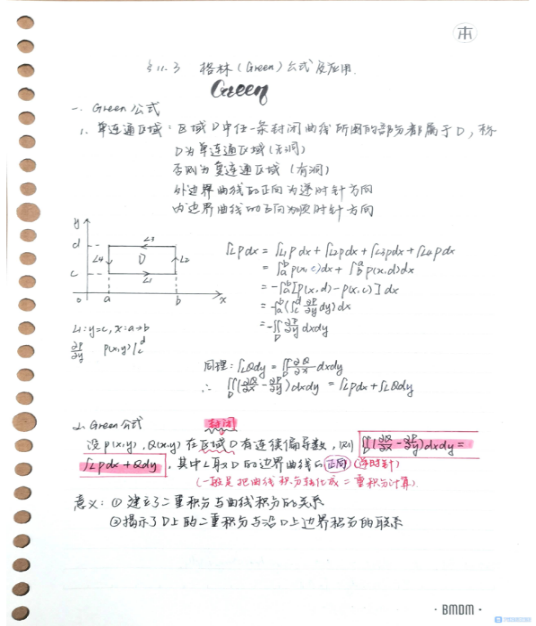 本
§11.3 格林(Green)公式及应用.
Green
一. Green公式
1. 单连通区域: 区域D中任一条封闭曲线所围的部分都属于D, 称
D为单连通区域(无洞)
否则为复连通区域 (有洞)
外边界曲线的正向为逆时针方向
内边界曲线的正向为顺时针方向
y
d L3
L4 D L2
c L1
0 a b x
∫L Pdx = ∫L1 Pdx + ∫L2 Pdx + ∫L3 Pdx + ∫L4 Pdx
= ∫a^b P(x,c)dx + ∫b^a P(x,d)dx
= -∫a^b [P(x,d) - P(x,c)] dx
= -∫a^b (∫c^d ∂P/∂y dy) dx
= -∬D ∂P/∂y dxdy
L1: y=c, x: a→b
∂P/∂y P(x,y)|c^d
同理: ∫L Qdy = ∬D ∂Q/∂x dxdy
∴ ∬D (∂Q/∂x - ∂P/∂y) dxdy = ∫L Pdx + ∫L Qdy
2. Green公式 封闭
设P(x,y), Q(x,y) 在区域D有连续偏导数, 则 ∬D (∂Q/∂x - ∂P/∂y) dxdy =
∫L Pdx + Qdy, 其中L取D的边界曲线的正向 (逆时针)
(一般是把曲线积分转化成二重积分计算)
意义: ① 建立了二重积分与曲线积分的关系
②揭示了D上的二重积分与沿D上边界积分的联系
· BMDM ·